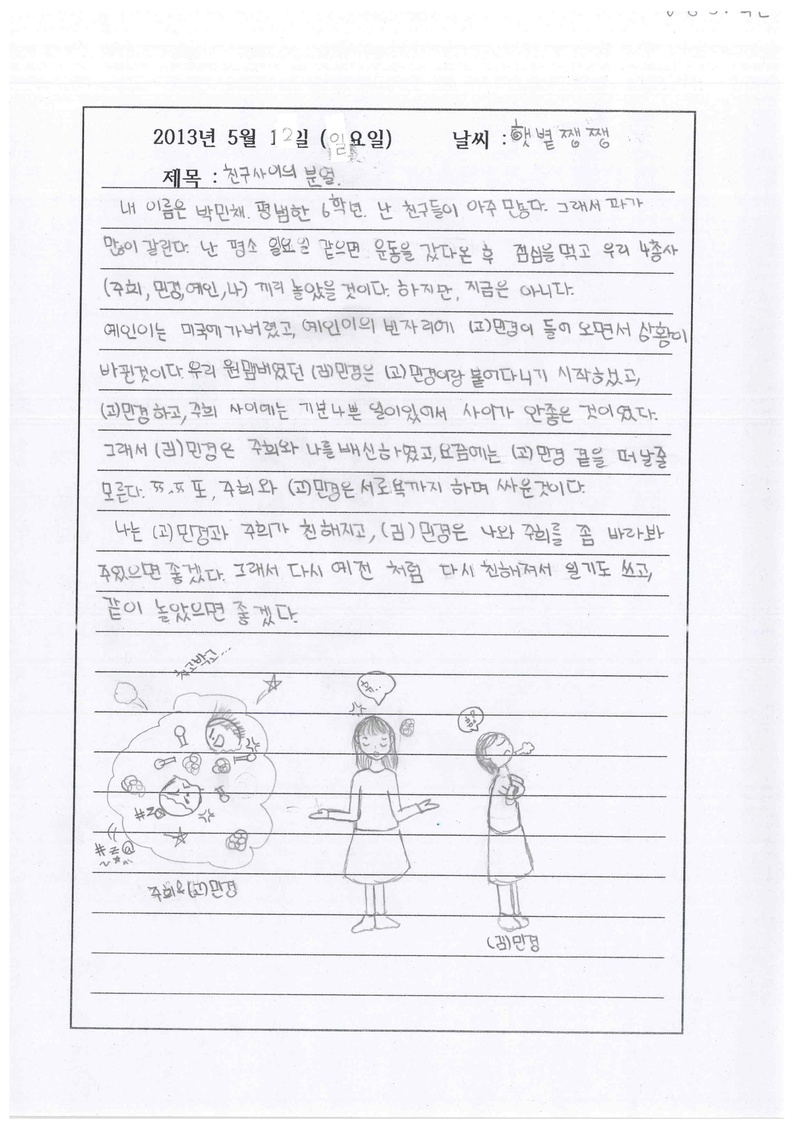 2013년 5월 12일 (일요일) 날씨 : 햇볕쨍쨍
제목 : 친구사이의 분열.
내 이름은 박민채. 평범한 6학년. 난 친구들이 아주 많다. 그래서 파가
많이 갈린다. 난 평소 일요일 같으면 운동을 갔다온 후 점심을 먹고 우리 4총사
(주희, 민경, 예인, 나) 끼리 놀았을것이다. 하지만, 지금은 아니다.
예인이는 미국에가버렸고, 예인이의 빈자리에 (고)민경이 들어 오면서 상황이
바뀐것이다. 우리 원맴버였던 (김)민경은 (고)민경이랑 붙어다니기 시작하였고,
(고)민경하고, 주희 사이에는 기분나쁜 일이있어서 사이가 안좋은 것이였다.
그래서 (김)민경은 주희와 나를 배신하였고, 요즘에는 (고)민경 곁을 떠날줄
모른다. ㅠ.ㅠ 또, 주희와 (고)민경은 서로욕까지 하며 싸운것이다.
나는 (고)민경과 주희가 친해지고, (김)민경은 나와 주희를 좀 바라봐
주었으면 좋겠다. 그래서 다시 예전 처럼 다시 친해져서 일기도 쓰고,
같이 놀았으면 좋겠다.
치고박고...
휴..
흥!
#z@
#z@
주희&(고)민경
(김)민경